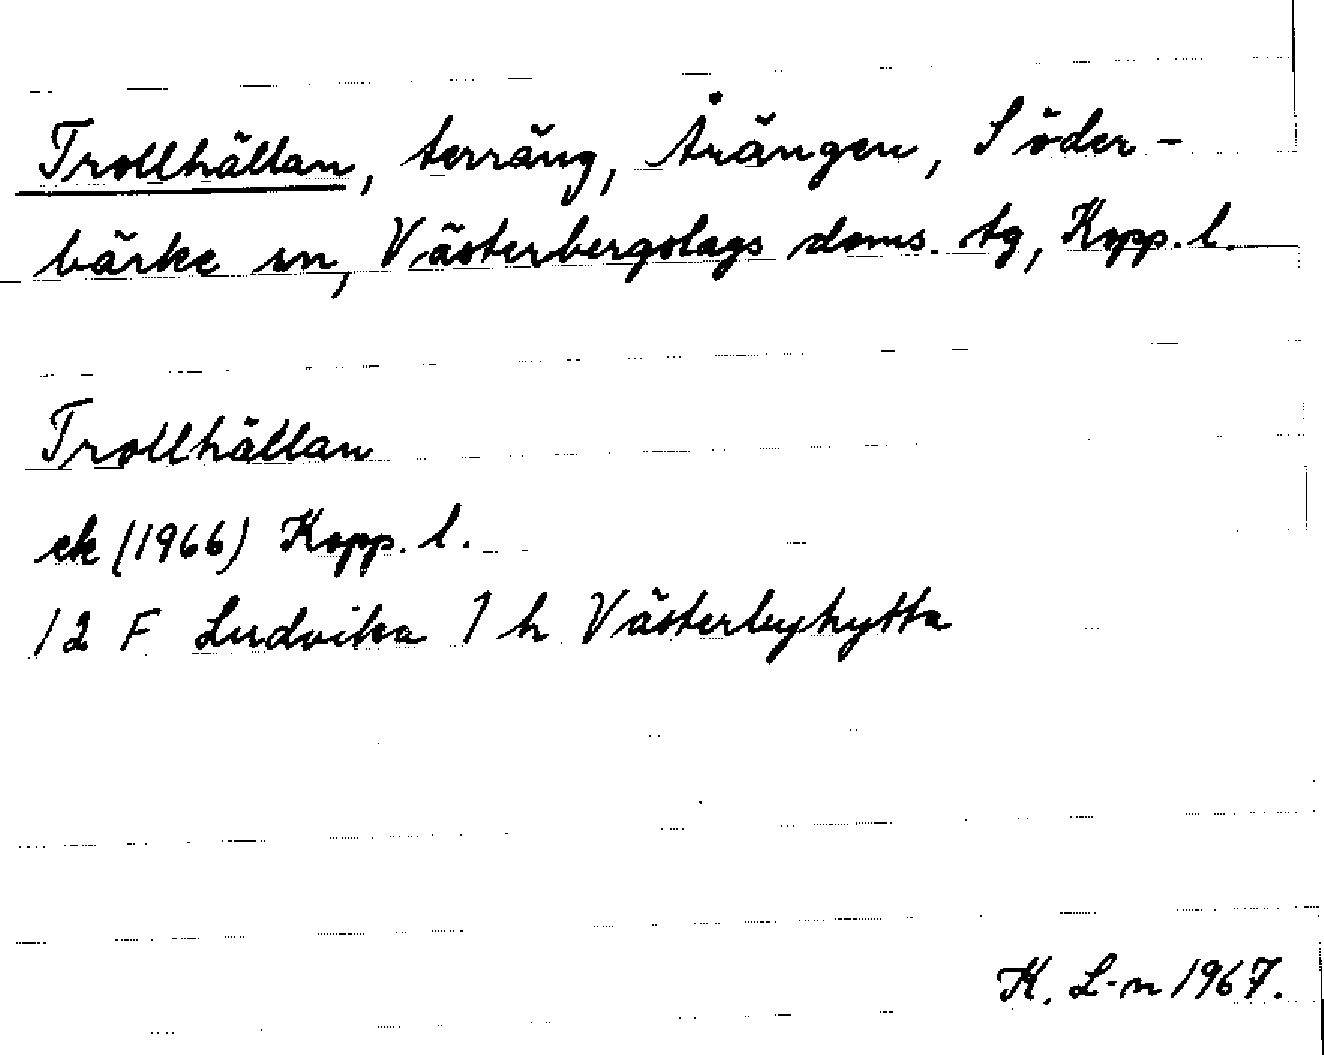 Trollhällan, terräng, Åvängen, Söder-
bärke sn, Västerbergslags doms. tg, Kopp. l.
Trollhällan
ek (1966) Kopp. l.
12 F Ludvika 1 h Västerbyhytta
K. L-n 1967.